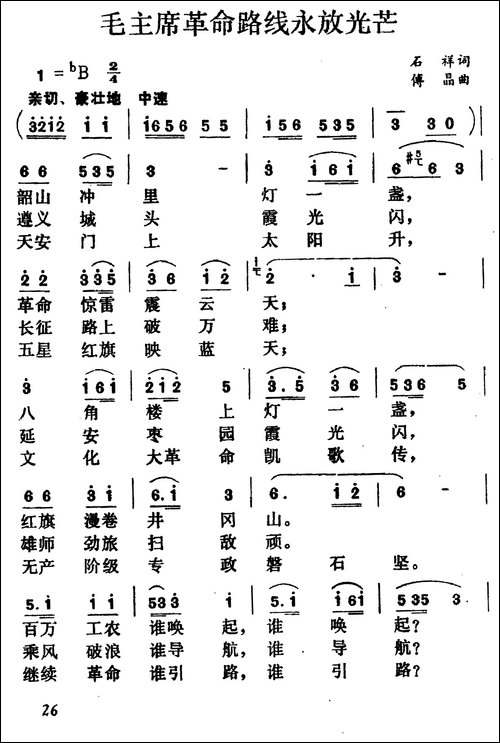 毛主席革命路线永放光芒
石 祥词
1 = ♭B 2/4
傅 晶曲
亲切、豪壮地 中速
(3212 1 1 | 1656 5 5 | 156 535 | 3 3 0) |
6 6 535 | 3 - | 3 161 | 6 6 3 |
韶山 冲 里 灯 一 盏,
遵义 城 头 霞 光 闪,
天安 门 上 太 阳 升,
2 2 335 | 3 6 1 2 | 2· 1 | 3 - |
革命 惊雷 震 云 天;
长征 路上 破 万 难;
五星 红旗 映 蓝 天;
3 161 | 212 5 | 3·5 3 6 | 536 5 |
八 角 楼 上 灯 一 盏,
延 安 枣 园 霞 光 闪,
文 化 大革 命 凯 歌 传,
6 6 3 1 | 6·1 3 | 6· 1 2 | 6 - |
红旗 漫卷 井 冈 山。
雄师 劲旅 扫 敌 顽。
无产 阶级 专 政 磐 石 坚。
5·1 1 1 | 533 1 | 5·1 161 | 535 3 |
百万 工农 谁唤 起,谁 唤 起?
乘风 破浪 谁导 航,谁 导 航?
继续 革命 谁引 路,谁 引 路?
26